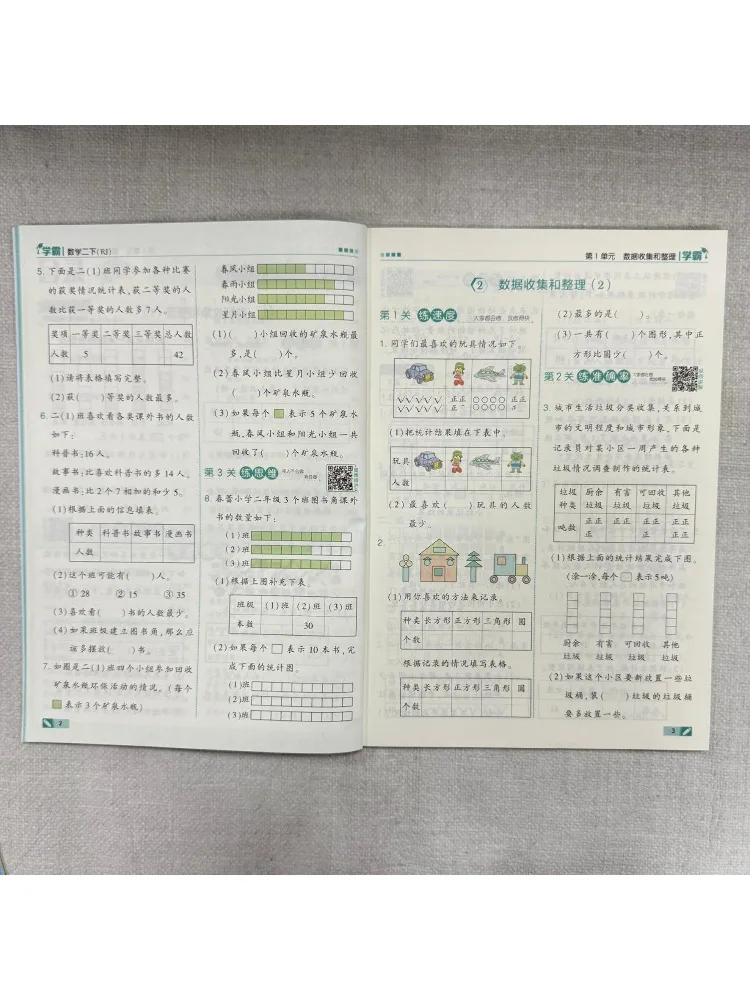 学霸 数学二下(RJ)
5. 下面是二(1)班同学参加各种比赛
的获奖情况统计表,获二等奖的人
数比获一等奖的人数多7人。
奖项 一等奖 二等奖 三等奖 总人数
人数 5 42
(1)请将表格填写完整。
(2)获( )等奖的人数最多。
6. 二(1)班喜欢看各类课外书的人数
如下:
科普书:16人。
故事书:比喜欢科普书的多14人。
漫画书:比2个7相加的和少5。
(1)根据上面的信息填表。
种类 科普书 故事书 漫画书
人数
(2)这个班可能有( )人。
①28 ②15 ③35
(3)喜欢看( )书的人数最少。
(4)如果班级建立图书角,那么应
该多摆放( )书。
7. 如图是二(1)班四个小组参加回收
矿泉水瓶环保活动的情况。(每个
表示3个矿泉水瓶)
2
春风小组
春雨小组
阳光小组
星月小组
(1)( )小组回收的矿泉水瓶最
多,是( )个。
(2)春风小组比星月小组少回收
( )个矿泉水瓶。
(3)如果每个 表示5个矿泉水
瓶,春风小组和阳光小组一共
回收了( )个矿泉水瓶。
第3关 练思维
8. 春蕾小学二年级3个班图书角课外
书的数量如下:
(1)班
(2)班
(3)班
(1)根据上图补充下表。
班级 (1)班 (2)班 (3)班
本数 30
(2)如果每个 表示10本书,完
成下面的统计图。
(1)班
(2)班
(3)班
第1单元 数据收集和整理 学霸
2 数据收集和整理(2)
第1关 练速度
1. 同学们最喜欢的玩具情况如下。
√√√√√ 正正 ○○○○ 正正
√√√√√ 正 ○○○○ 正
(1)把统计结果填在下表中。
玩具
人数
(2)最喜欢( )玩具的人数
最少。
2.
(1)用你喜欢的方法来记录。
种类 长方形 正方形 三角形 圆
个数
根据记录的情况填写表格。
种类 长方形 正方形 三角形 圆
个数
(2)最多的是( )。
(3)一共有( )个图形,其中正
方形比圆少( )个。
第2关 练准确率
3. 城市生活垃圾分类收集,关系到城
市的文明程度和城市形象。下面是
记录员对某小区一周产生的各种
垃圾情况调查制作的统计表。
垃圾 厨余 有害 可回收 其他
种类 垃圾 垃圾 垃圾 垃圾
吨数
(1)根据上面的统计结果完成下图。
(涂一涂,每个 表示5吨)
厨余 有害 可回收 其他
垃圾 垃圾 垃圾 垃圾
(2)如果这个小区要新放置一些垃
圾桶,装( )垃圾的垃圾桶
要多放置一些。
3